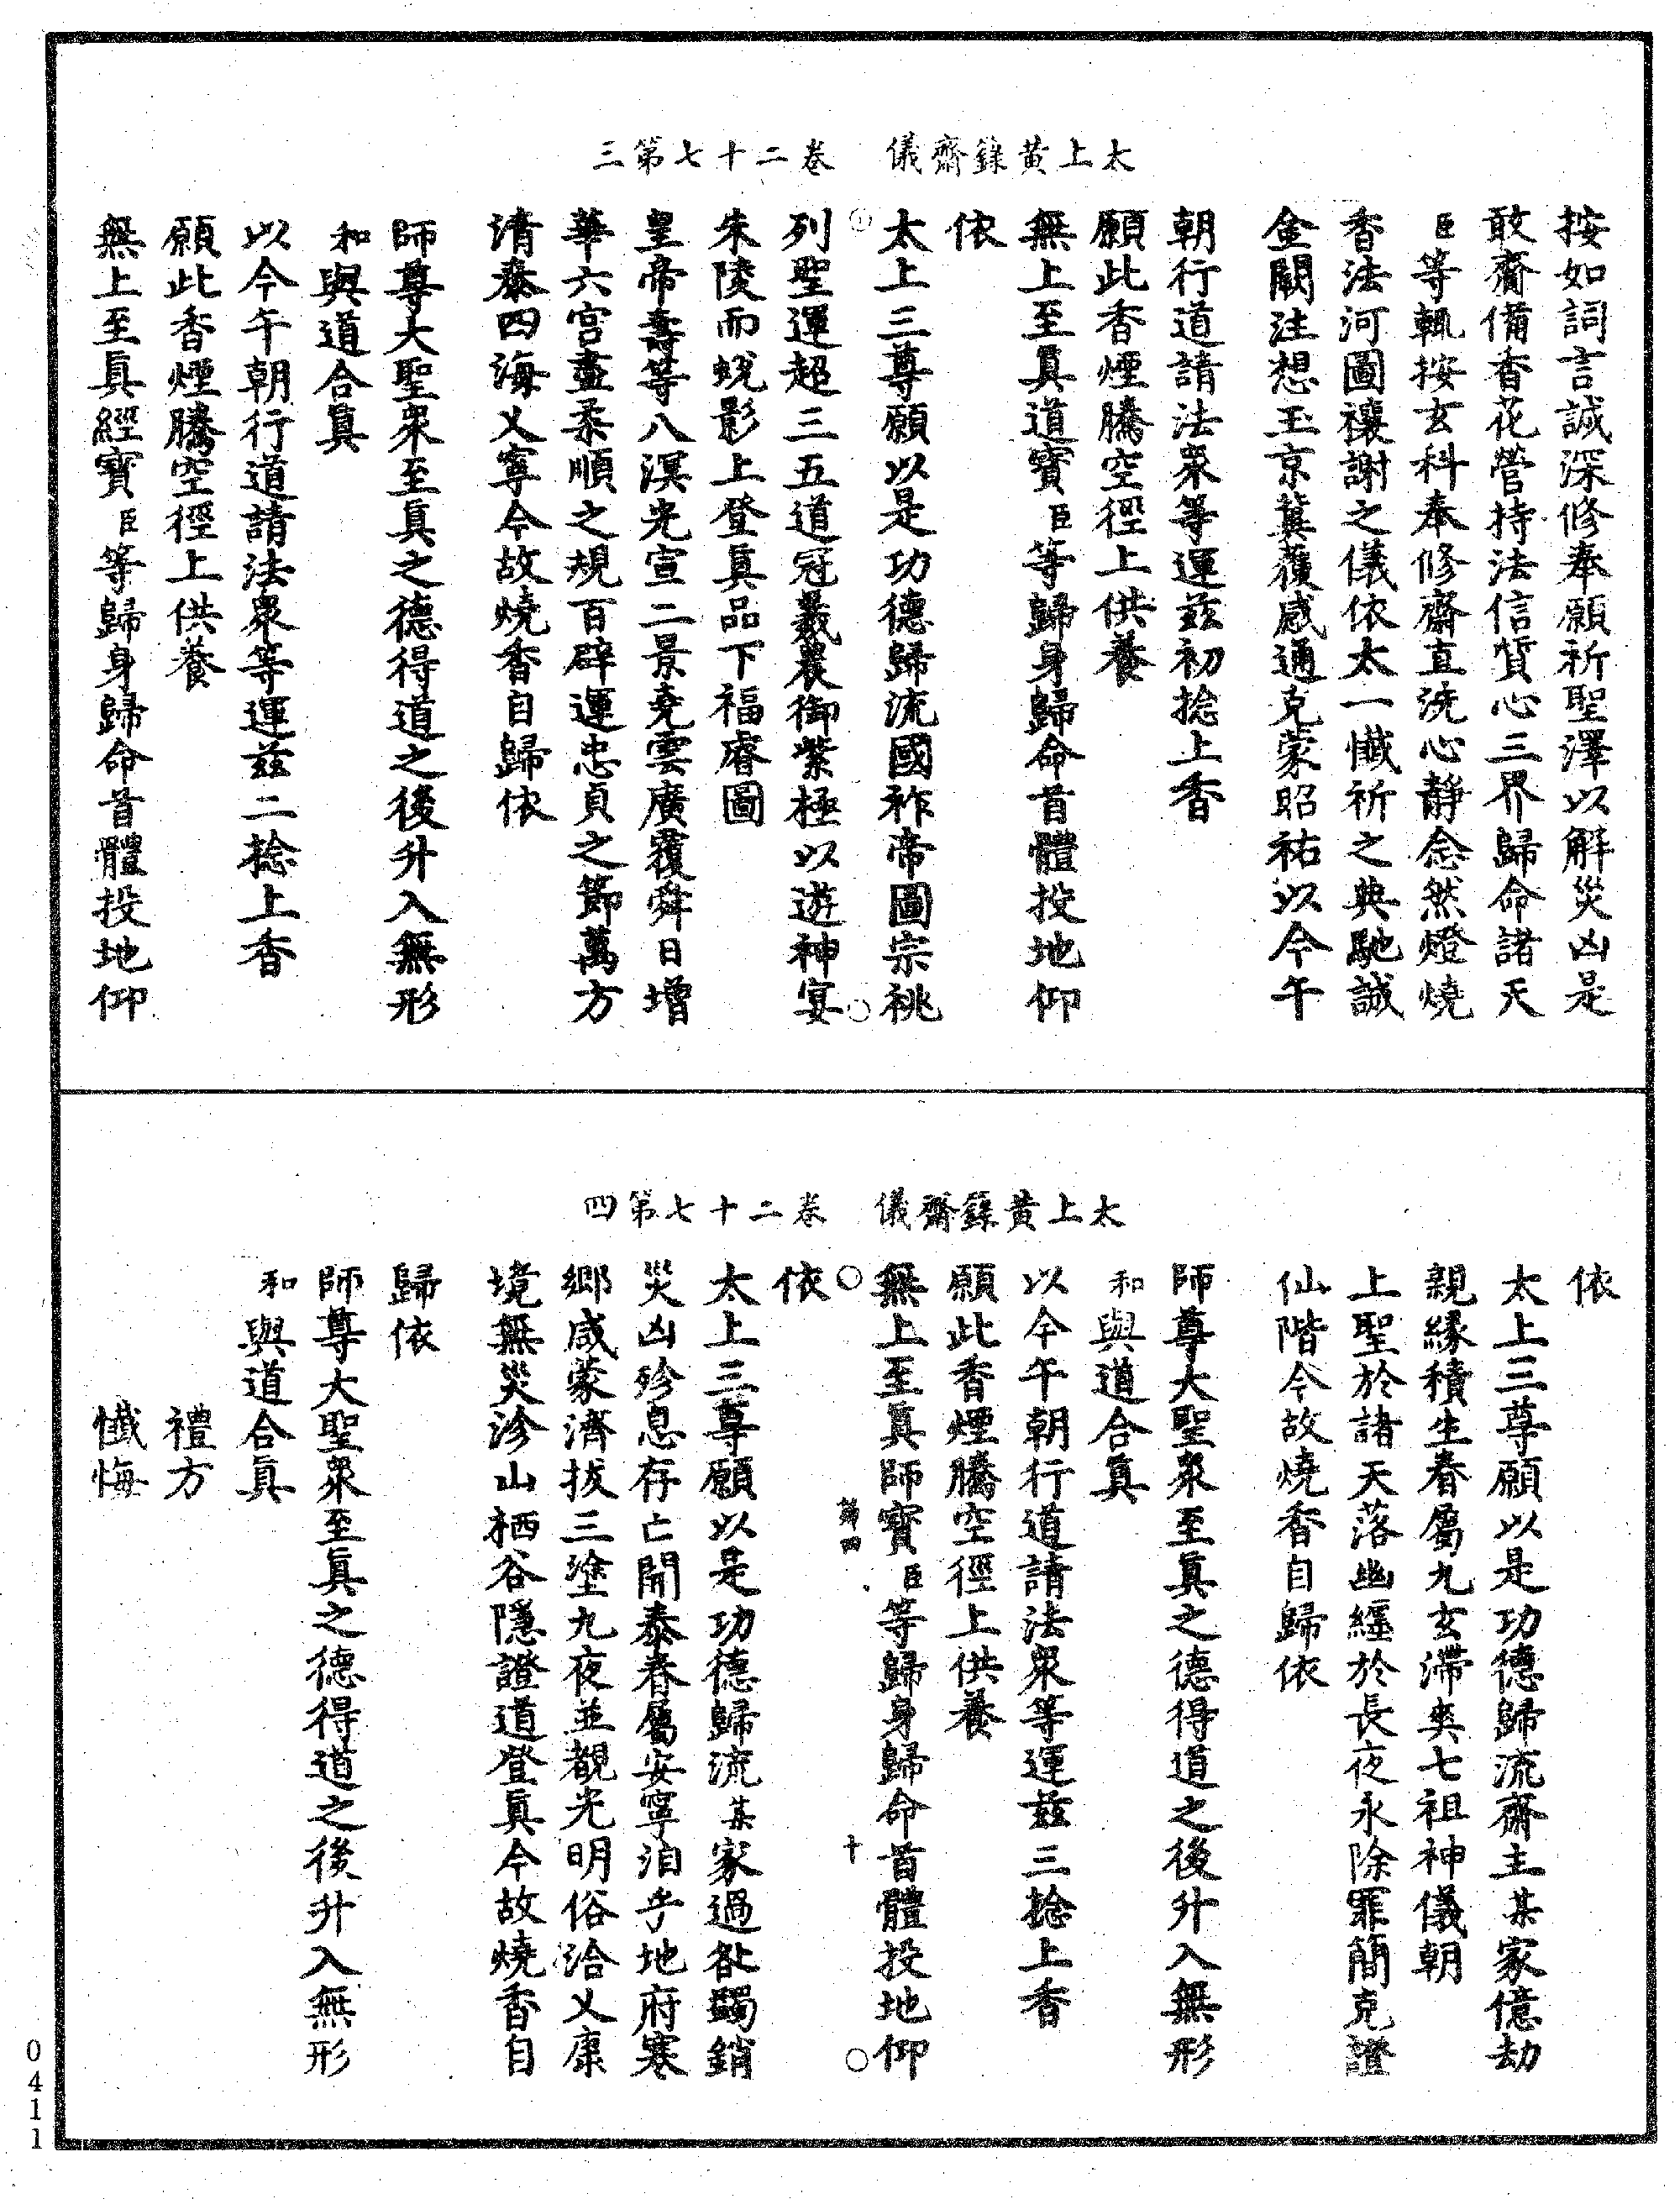 太上黃籙齋儀　卷二十七第三
按如詞言誠深修奉願祈聖澤以解災凶是
敢齋備香花營持法信質心三界歸命諸天
臣等輒按玄科奉修齋直洗心靜念然燈燒
香法河圖禳謝之儀依太一懺祈之典馳誠
金闕注想玉京冀獲感通克蒙昭祐以今午
朝行道請法眾等運茲初捻上香
願此香煙騰空徑上供養
無上至真道寶臣等歸身歸命首體投地仰
依
太上三尊願以是功德歸流國祚帝圖宗祧
列聖運超三五道冠羲農御紫極以遊神宴
朱陵而蛻影上登真品下福睿圖
皇帝壽等八溟光宣二景堯雲廣覆舜日增
華六宮盡柔順之規百辟運忠貞之節萬方
清泰四海乂寧今故燒香自歸依
師尊大聖眾至真之德得道之後升入無形
和與道合真
以今午朝行道請法眾等運茲二捻上香
願此香煙騰空徑上供養
無上至真經寶臣等歸身歸命首體投地仰
太上黃籙齋儀　卷二十七第四
依
太上三尊願以是功德歸流齋主某家億劫
親緣積生眷屬九玄滯爽七祖神儀朝
上聖於諸天落幽纏於長夜永除罪簡克證
仙階今故燒香自歸依
師尊大聖眾至真之德得道之後升入無形
和與道合真
以今午朝行道請法眾等運茲三捻上香
願此香煙騰空徑上供養
無上至真師寶臣等歸身歸命首體投地仰
第四　十
依
太上三尊願以是功德歸流某家過咎蠲銷
災凶殄息存亡開泰眷屬安寧洎乎地府寒
鄉咸蒙濟拔三塗九夜並覩光明俗洽乂康
境無災沴山栖谷隱證道登真今故燒香自
歸依
師尊大聖眾至真之德得道之後升入無形
和與道合真
禮方
懺悔
0411